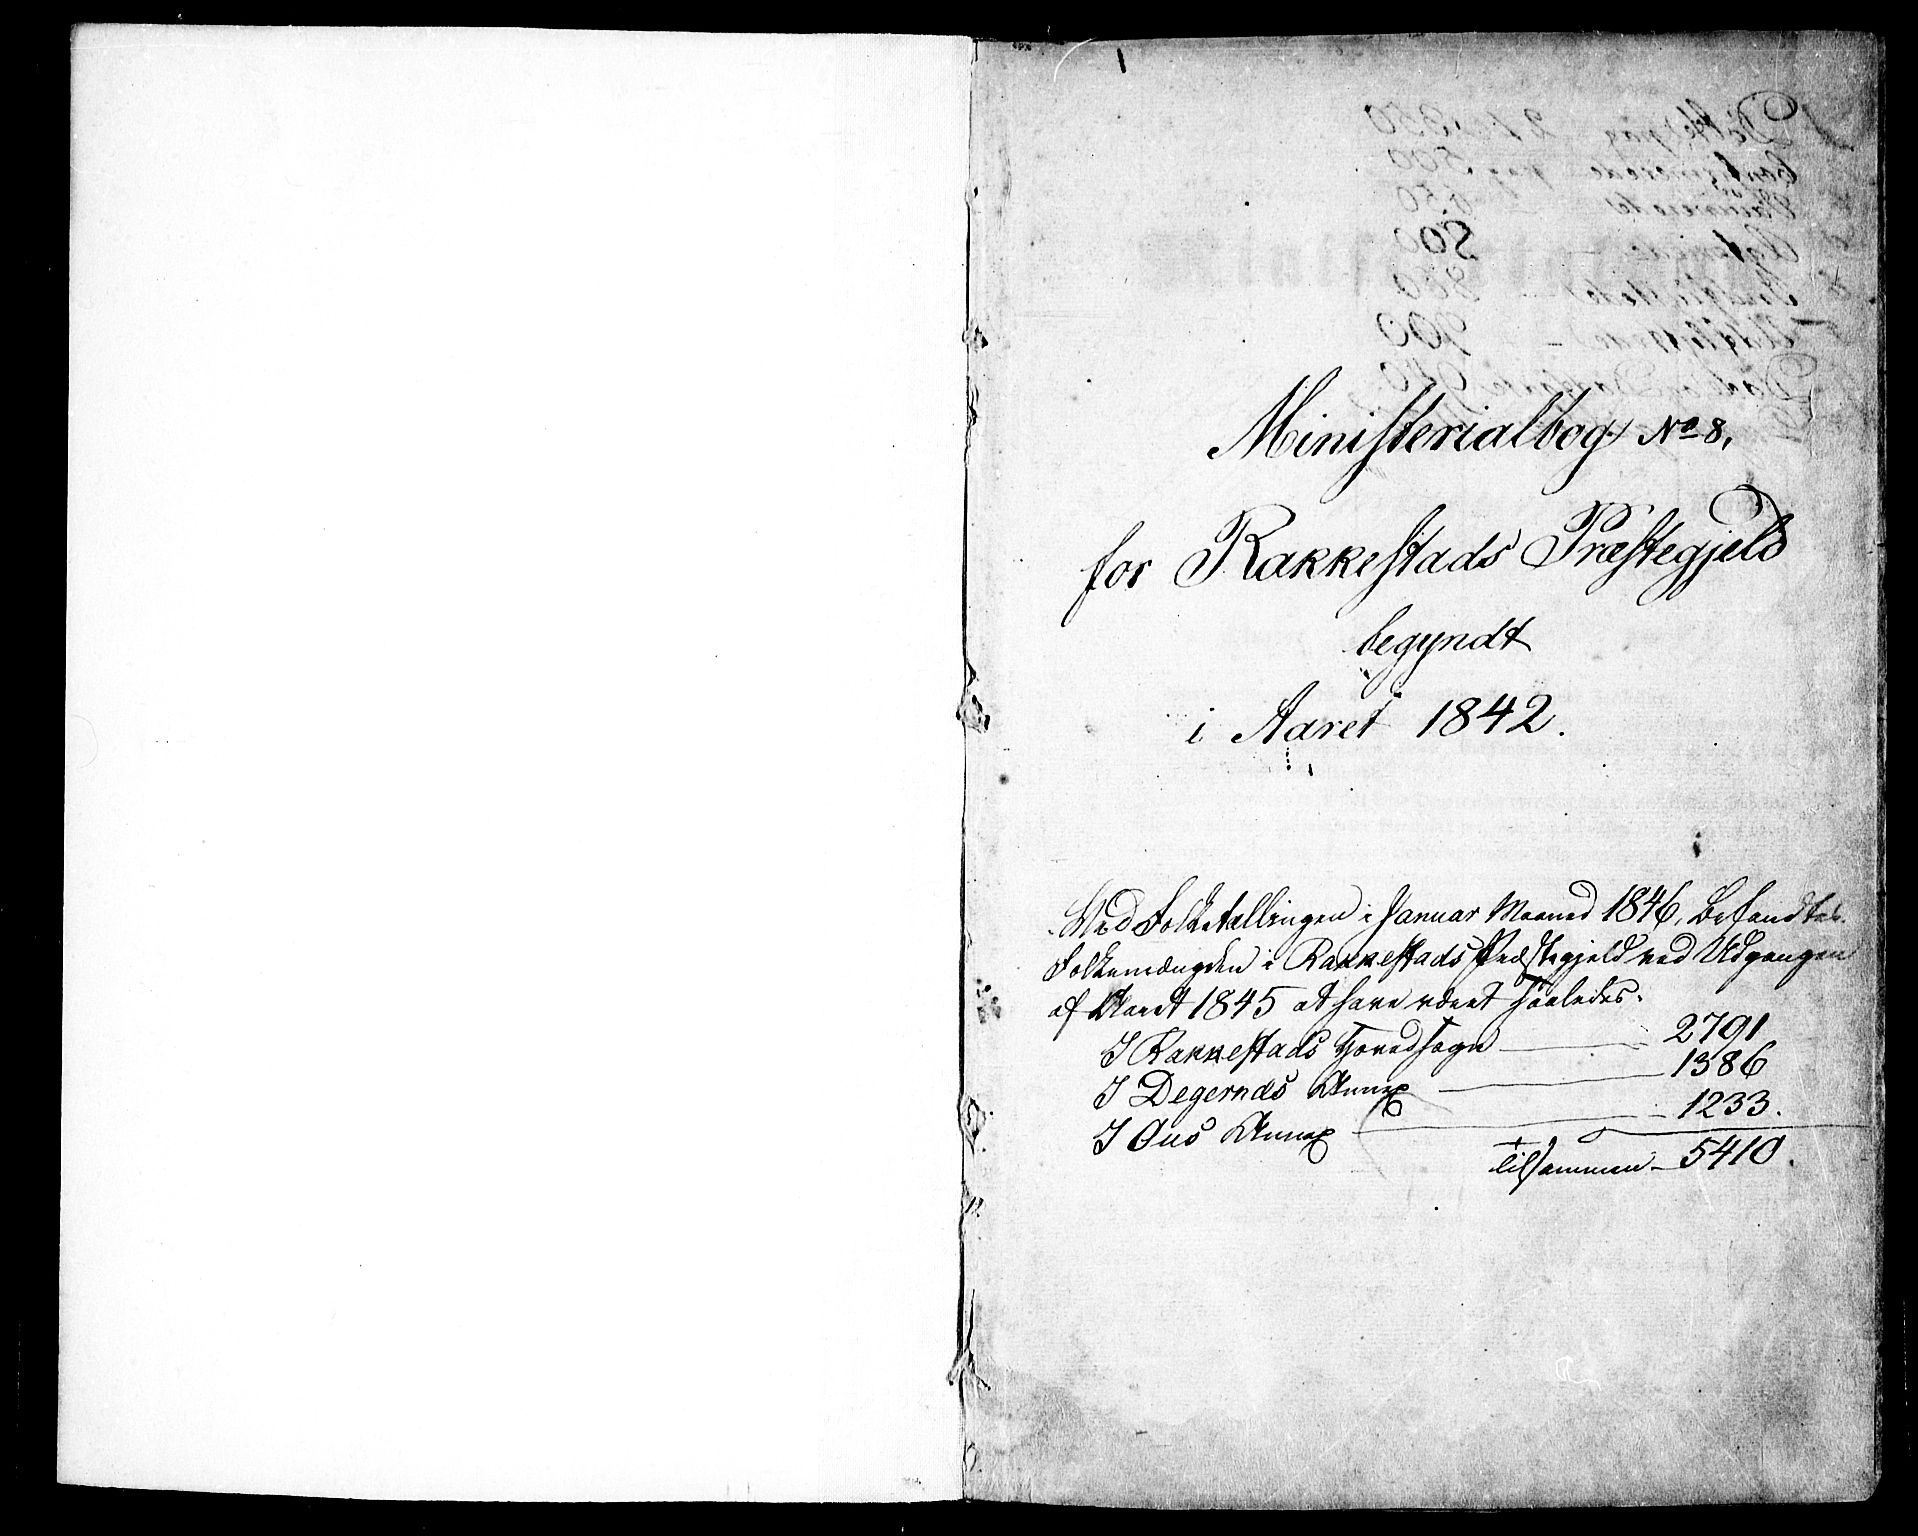 Ministerialbog No 8,
for Rakkestads Præstegjeld
begyndt
i Aaret 1842.
Ved Folketællingen i Januar Maaned 1846, befandtes
Folkemængden i Rakkestads Præstegjeld ved Udgangen
af Aaret 1845 at have været saaledes.
I Rakkestads Hovedsogn — 2791
I Degernæs Annex — 1386
I Øus Annex — 1233.
tilsammen — 5410.